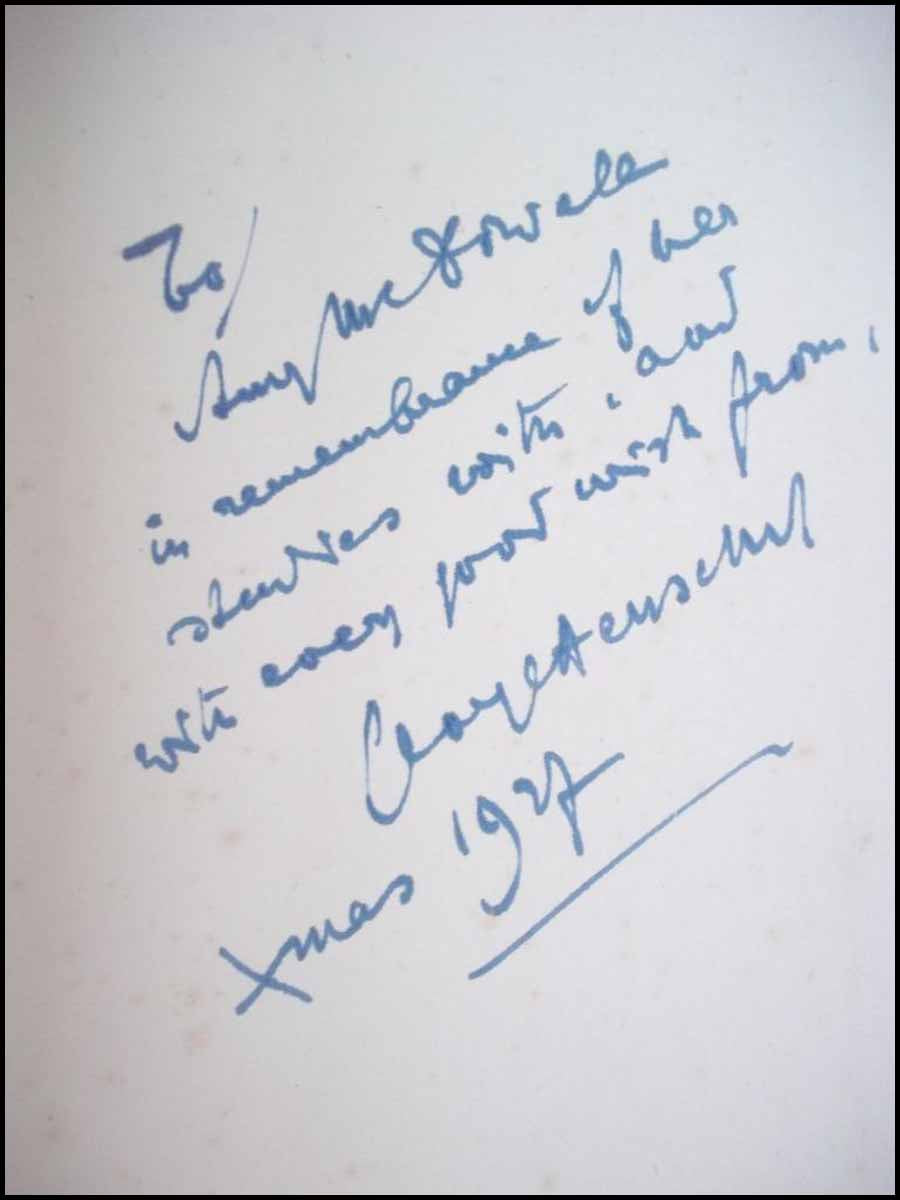 To/
Amy McDowall
in remembrance of her
studies with, and
with every good wish from,
George Henschel
Xmas 1927